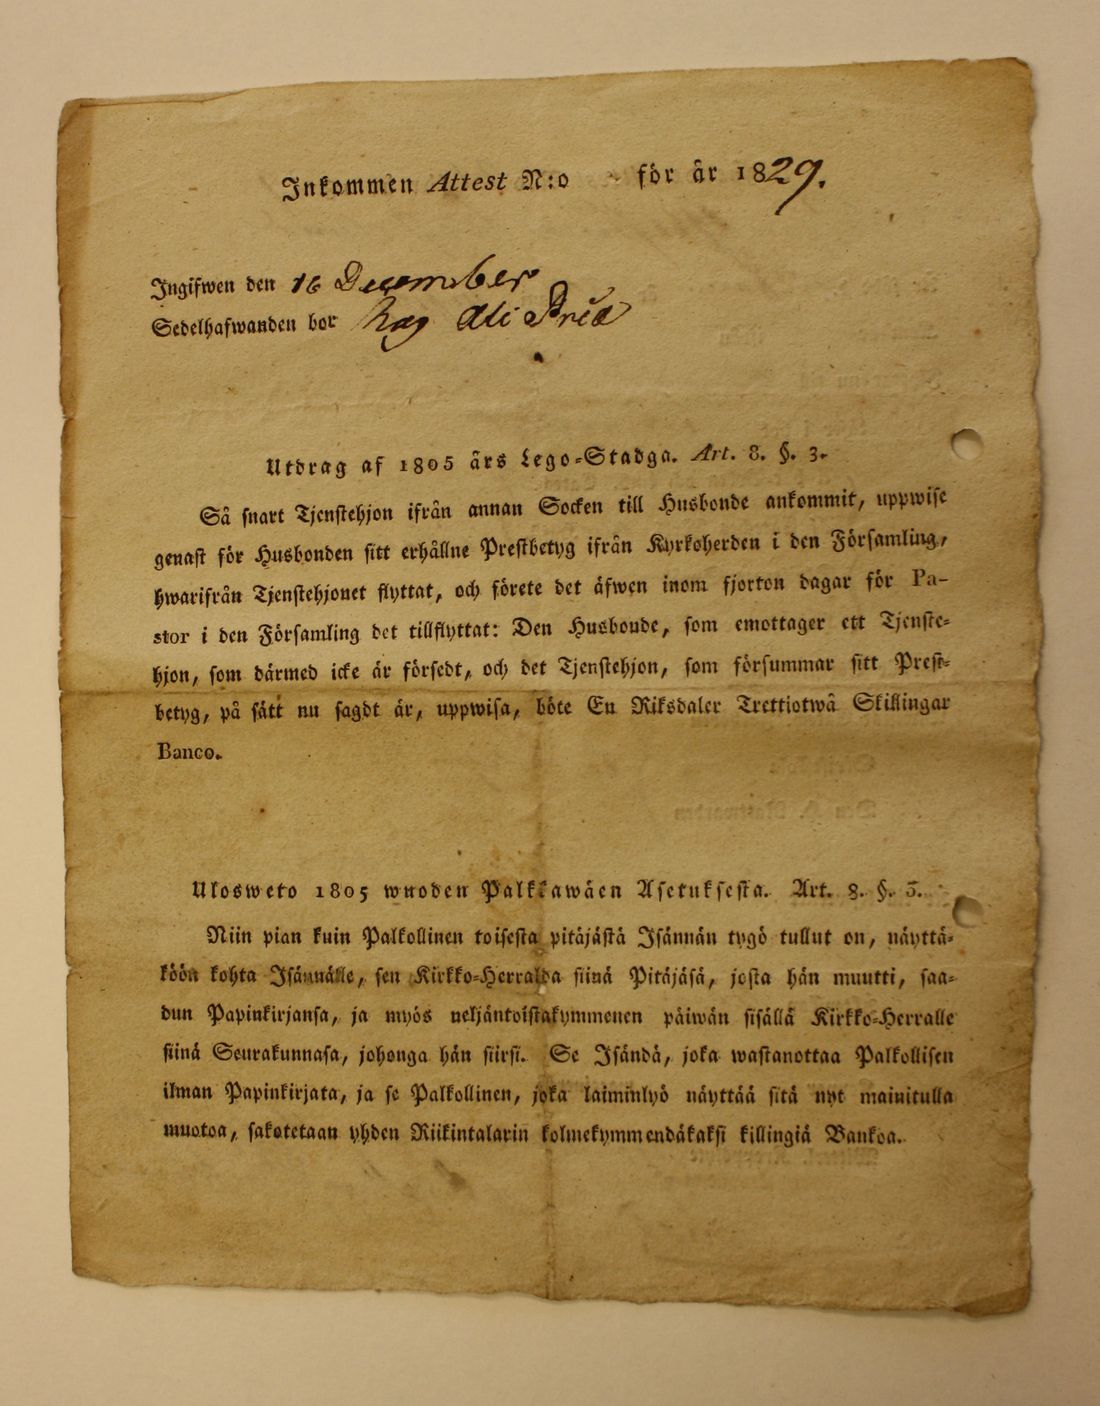 Inkommen Attest N:o för år 1829.
Ingifwen den 16 December
Sedelhafwanden bor hos
Utdrag af 1805 års Lego-Stadga. Art. 8. §. 3.
Så snart Tjenstehjon ifrån annan Socken till Husbonde ankommit, uppwise
genast för Husbonden sitt erhållne Prestbetyg ifrån Kyrkoherden i den Församling,
hwarifrån Tjenstehjonet flyttat, och förete det äfwen inom fjorton dagar för Pa-
stor i den Församling det tillflyttat: Den Husbonde, som emottager ett Tjenste-
hjon, som därmed icke är försedt, och det Tjenstehjon, som försummar sitt Prest-
betyg, på sätt nu sagdt är, uppwisa, böte En Riksdaler Trettiotwå Skillingar
Banco.
Ulosweto 1805 wuoden Palkkawäen Asetuksesta. Art. 8. §. 3.
Niin pian kuin Palkollinen toisesta pitäjästä Isännän tygö tullut on, näyttä-
köön kohta Isännälle, sen Kirkko-Herralda siinä Pitäjäsä, josta hän muutti, saa-
dun Papinkirjansa, ja myös neljäntoistakymmenen päiwän sisällä Kirkko-Herralle
siinä Seurakunnasa, johonga hän siirsi. Se Isändä, joka wastanottaa Palkollisen
ilman Papinkirjata, ja se Palkollinen, joka laiminlyö näyttää sitä nyt mainitulla
muotoa, sakotetaan yhden Riikintalarin kolmekymmendäkaksi killingiä Bankoa.